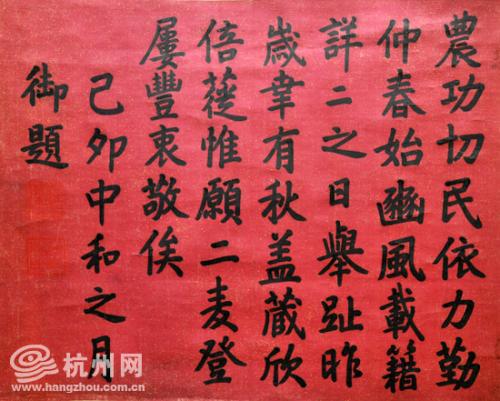 農功切民依力勤
仲春始豳風載籍
詳二之日舉趾昨
歲幸有秋盖藏欣
倍蓰惟願二麦登
屢豐衷敬俟
己卯中和之月
御題
杭州网
www.hangzhou.com.cn